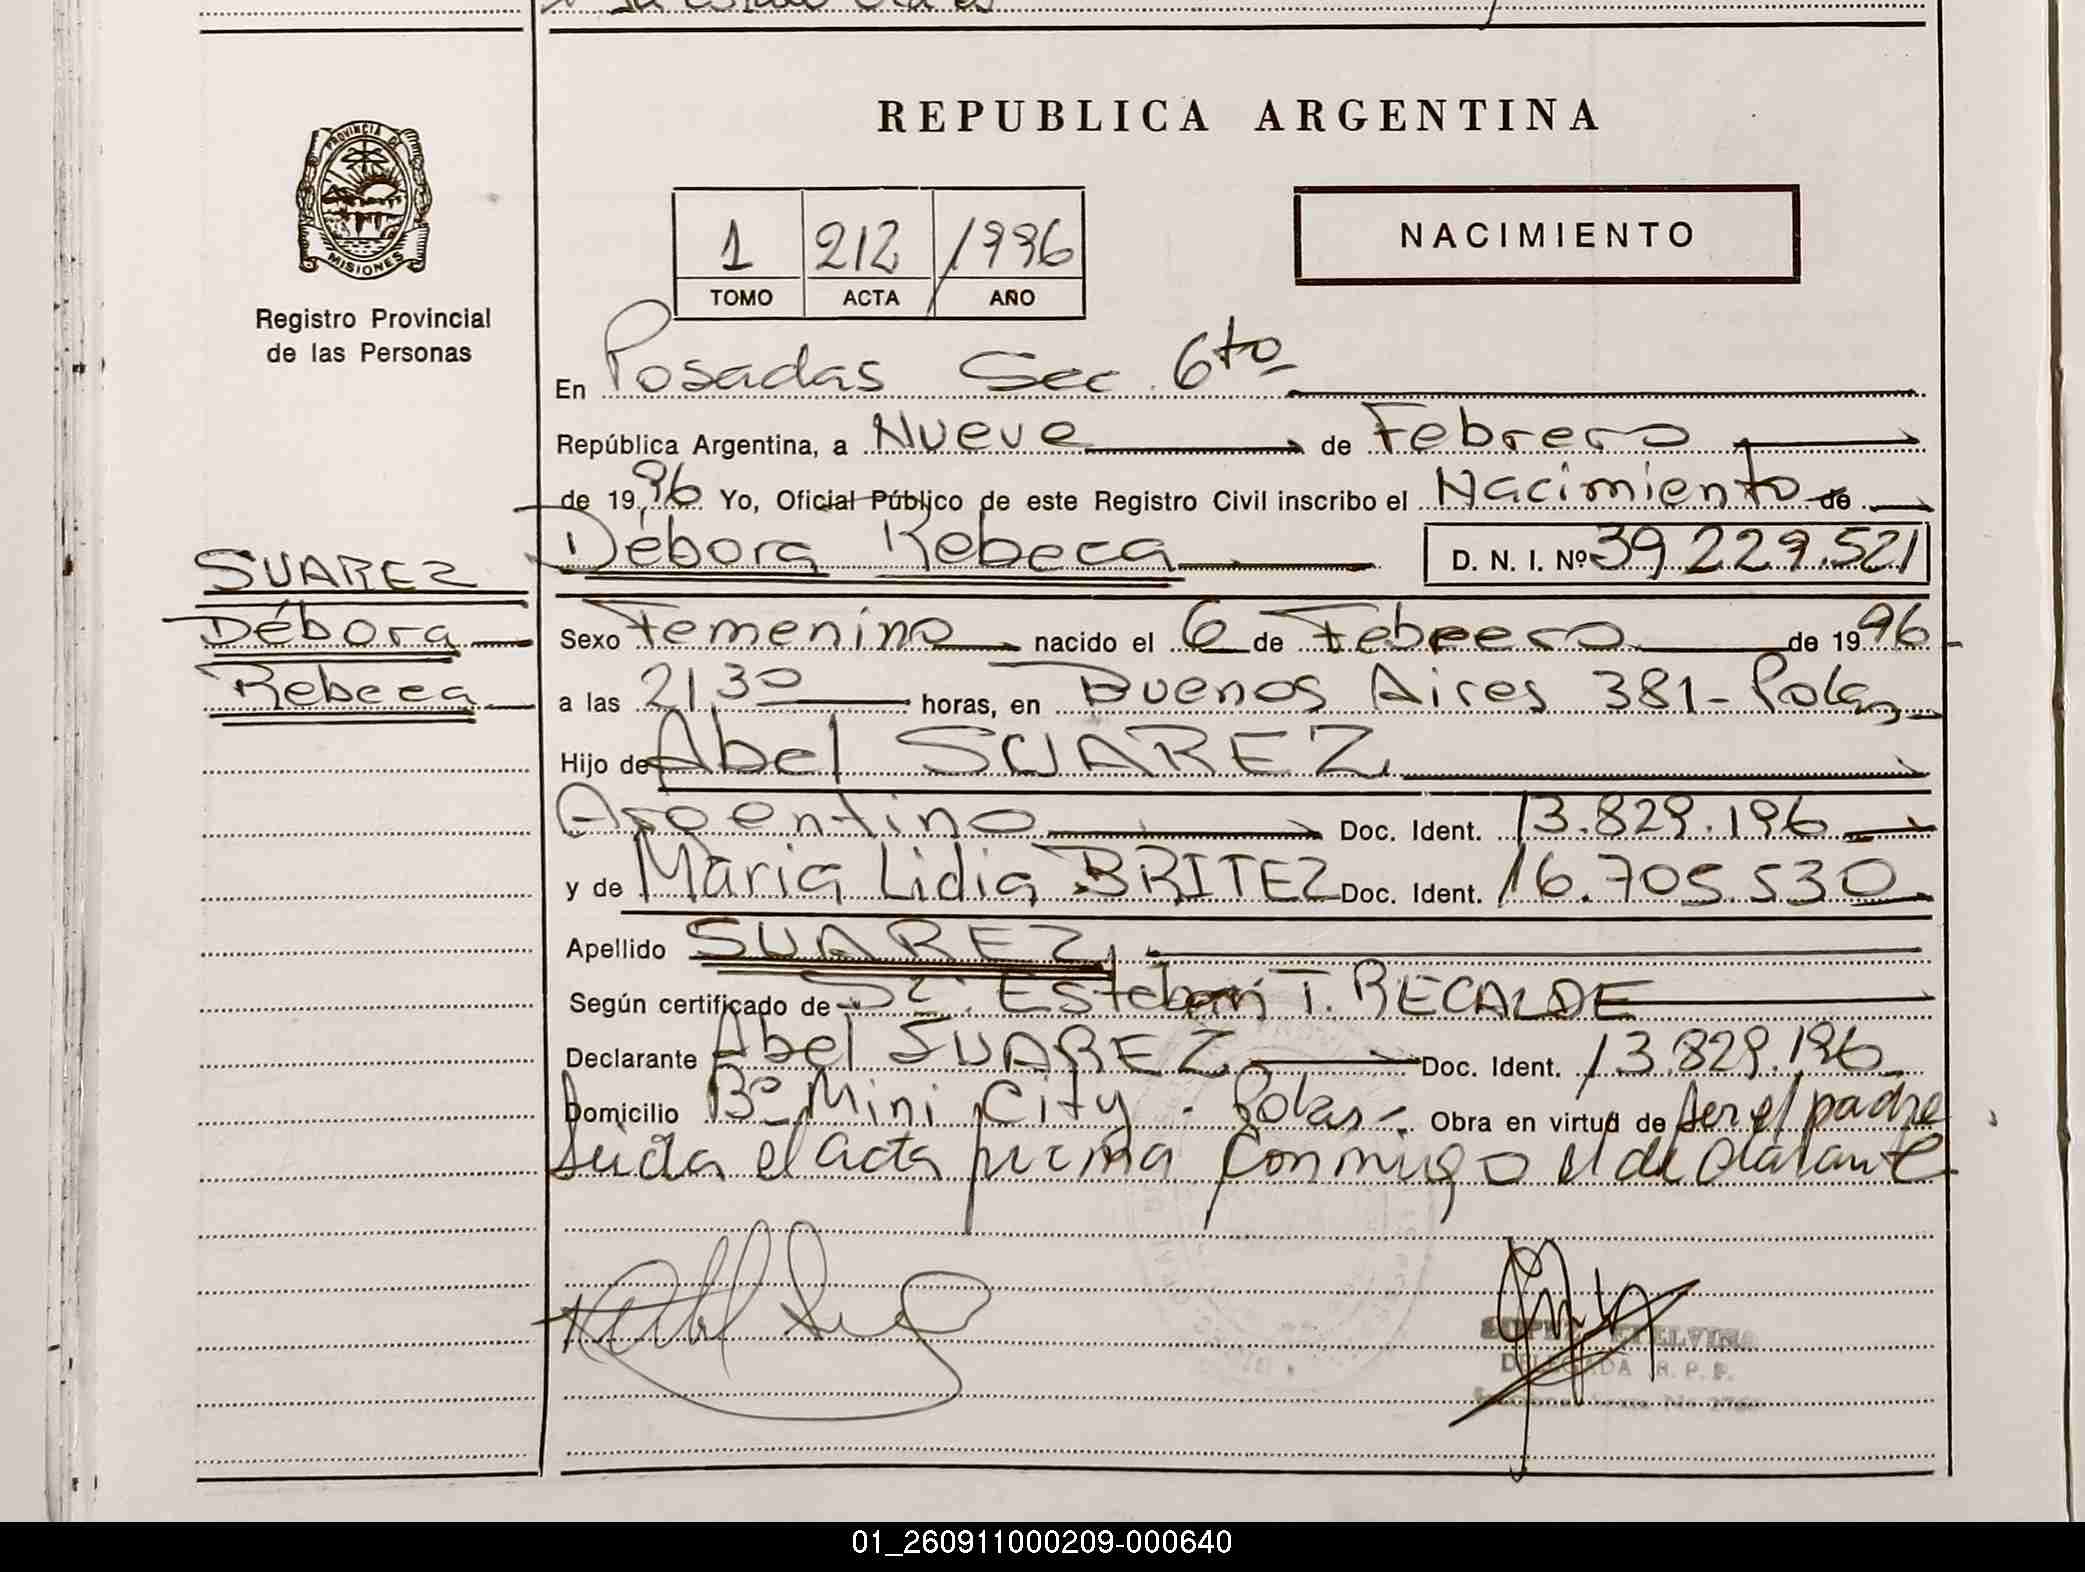 REPUBLICA ARGENTINA
PROVINCIA DE
MISIONES
Registro Provincial
de las Personas
1 212 /1996
TOMO ACTA AÑO
NACIMIENTO
En Posadas Sec. 6to
República Argentina, a Nueve de Febrero
de 1996 Yo, Oficial Público de este Registro Civil inscribo el Nacimiento de
Débora Rebeca D. N. I. Nº 39.229.521
SUAREZ
Débora
Rebeca
Sexo Femenino nacido el 6 de Febrero de 1996
a las 21,30 horas, en Buenos Aires 381-Pdas
Hijo de Abel SUAREZ
Argentino Doc. Ident. 13.829.196
y de Maria Lidia BRITEZ Doc. Ident. 16.705.530
Apellido SUAREZ
Según certificado de Dr. Esteban T. RECALDE
Declarante Abel SUAREZ Doc. Ident. 13.829.196
Domicilio Bº Mini City - Pdas. Obra en virtud de ser el padre
Leida el acta firma conmigo el declarante
ETELVINA
DELEGADA R. P. P.
01_260911000209-000640